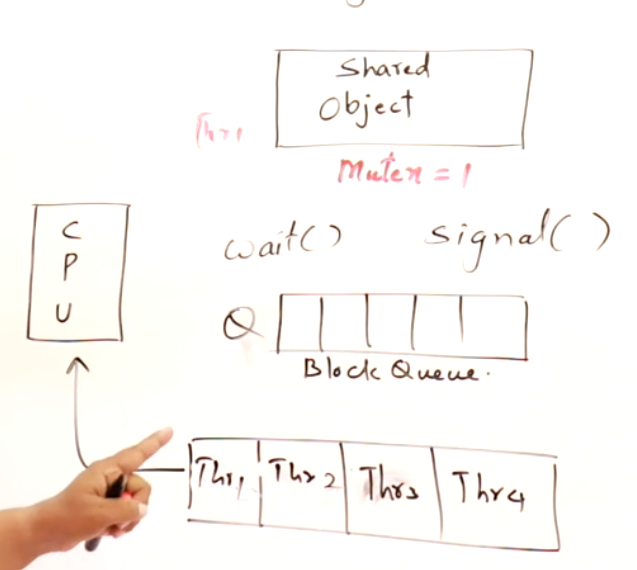 Shared
Object
Thr1
Mutex = 1
C
P
U
wait() signal()
Q
Block Queue.
Thr1 Thr2 Thr3 Thr4